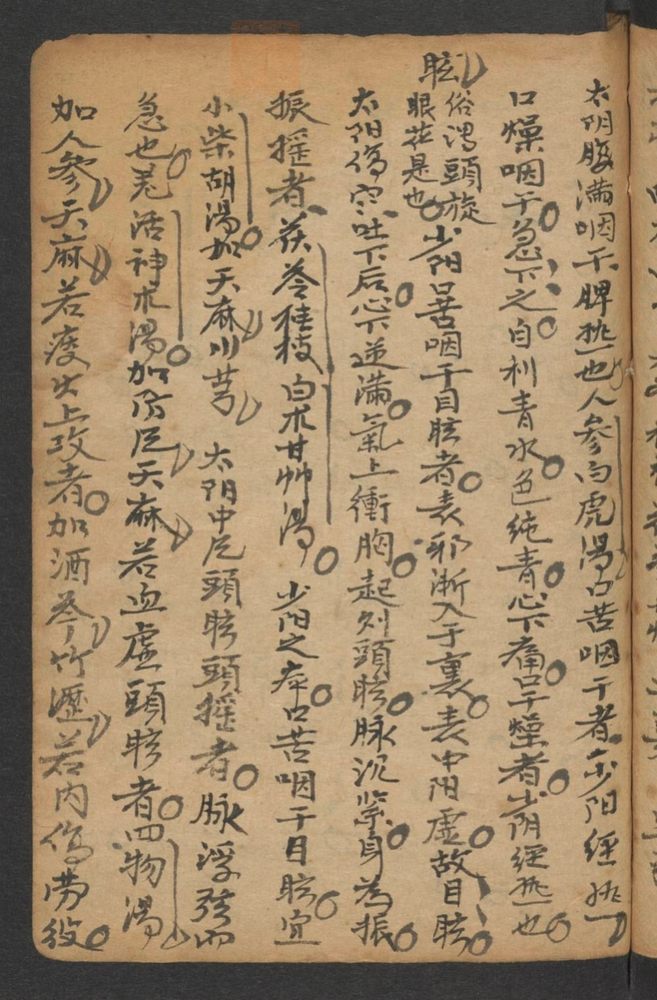 太阴腹满咽干脾挑也人参白虎湯口苦咽干者少阳經挑
口燥咽干急下之自利青水色純青心下痛口干燥者少阴經挑也
眩
俗谓頭旋
眼花是也
少阳口苦咽干目眩者表邪渐入于裏表中阳虚故目眩
太阳傷寒吐下后心下逆满氣上衝胸起则頭眩脉沉紧身為振
振摇者茯苓桂枝白术甘艸湯 少阳之病口苦咽干目眩宜
小柴胡湯加天麻川芎 太阳中风頭眩頭摇者脉浮弦而
急也羌活神术湯加防风天麻若血虚頭眩者四物湯
加人參天麻若痰火上攻者加酒芩竹瀝若内傷劳役